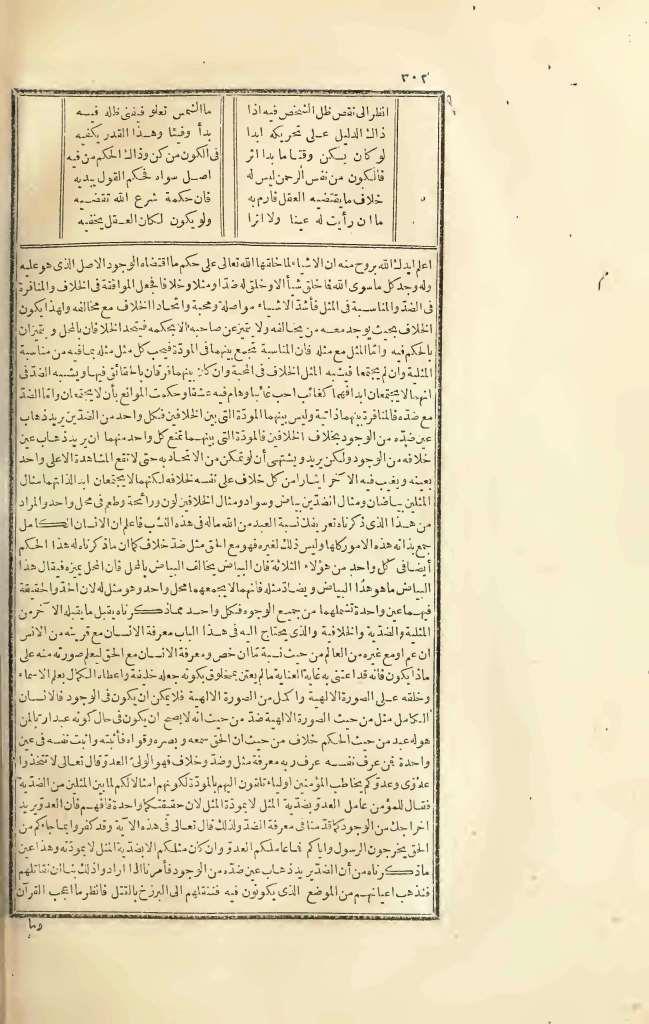 ٣٠٢
انظر الى نقص ظل الشخص فيه اذا ما الشمس تعلو فيفنى ظله فيه
ذاك الدليل على تحريكه ابدا بدأ وفيئا وهذا القدر يكفيه
لو كان يسكن وقتا ما بدا اثر فى الكون من كن وذاك الحكم من فيه
فالكون من نفس الرحمن ليس له اصل سواه فحكم القول يبديه
خلاف ما يقتضيه العقل فارم به فان حكمة شرع الله تقضيه
ما ان رأيت له عينا ولا اثرا ولو يكون لكان العقل يخفيه
اعلم ايدك الله بروح منه ان الاشياء لما خلقها الله تعالى على حكم ما اقتضاه الوجود الاصل الذى هو عليه
وله وجد كل ما سوى الله فما خلق شيأ الا وخلق له ضدا ومثلا وخلافا فجعل الموافقة فى الخلاف والمنافرة
فى الضد والمناسبة فى المثل فأشد الاشياء مواصلة ومحبة واتحادا الخلاف مع مخالفه ولهذا يكون
الخلاف بحيث يوجد معه من يخالفه ولا يتميز عن صاحبه الا بحكمه فيتحد الخلافان بالمحل ويتميزان
بالحكم فيه واما المثل مع مثله فان المناسبة تجمع بينهما فى المودة فيحب كل مثل مثله بما فيه من مناسبة
المثلية وان لم يجتمعا فيشبه المثل الخلاف فى المحبة وان كان بينهما فرقان بالحقائق فيها ويشبه الضد فى
انهما لا يجتمعان ابدا فهما كغائب احب غائبا وهام فيه عشقا وحكمت الموانع بأن لا يجتمعان واما الضد
مع ضده فالمنافرة بينهما ذاتية وليس بينهما المودة التى بين الخلافين فكل واحد من الضدين يريد ذهاب
عين ضده من الوجود بخلاف الخلافين فالمودة التى بينهما تمنع كل واحد منهما ان يريد ذهاب عين
خلافه من الوجود ولكن يريد ويشتهى أن لو تمكن من الاتحاد به حتى لا تقع المشاهدة الا على واحد
بعينه ويغيب فيه الآخر ايثارا من كل خلاف على نفسه خلافه لكنهما لا يجتمعان ابدا لذاتهما مثال
المثلين بياضان ومثال الضدين بياض وسواد ومثال الخلافين لون ورائحة وطعم فى محل واحد والمراد
من هذا الذى ذكرناه تعريفك نسبة العبد من الله ماله فى هذه النسب فاعلم ان الانسان الكامل
جمع بذاته هذه الامور كلها وليس ذلك لغيره فهو مع الحق مثل ضد خلاف كما ان ما ذكرناه له هذا الحكم
أيضا فى كل واحد من هؤلاء الثلاثة فان البياض يخالف البياض بالمحل فان المحل يميزه فيقال هذا
البياض ما هو هذا البياض ويضاد مثله فانهما لا يجمعهما محل واحد وهو مثل له لان الحد والحقيقة
فيهما عين واحدة تشملهما من جميع الوجوه فكل واحد مما ذكرناه يقبل ما يقبله الآخر من
المثلية والضدية والخلافية والذى يحتاج اليه فى هذا الباب معرفة الانسان مع قرينه من الانس
ان عم او مع غيره من العالم من حيث نسبة تا ان خص ومعرفة الانسان مع الحق ليعلم صورته منه على
ماذا يكون فانه قد اعتنى به غاية العناية مالم يعتن بمخلوق بكونه جعله خليفة واعطاه الكمال بعلم الاسماء
وخلقه على الصورة الالهية واكمل من الصورة الالهية فلا يمكن ان يكون فى الوجود فالانسان
الكامل مثل من حيث الصورة الالهية ضد من حيث انه لا يصح ان يكون فى حال كونه عبدا ربا لمن
هو له عبد من حيث الحكم خلاف من حيث ان الحق سمعه وبصره وقواه فأثبته واثبت نفسه فى عين
واحدة فمن عرف نفسه عرف ربه معرفة مثل وضد وخلاف فهو الولى العدو قال تعالى لا تتخذوا
عدوى وعدوكم يخاطب المؤمنين اولياء تلقون اليهم بالمودة لكونهم امثالا لكم لما بين المثلين من الضدية
فقال للمؤمن عامل العدو بضدية المثل لا بمودة المثل لان حقيقتكما واحدة فافهم فان العدو يريد
اخراجك من الوجود كما قدمنا فى معرفة الضد ولذلك قال تعالى فى هذه الآية وقد كفروا بما جاءكم من
الحق يخرجون الرسول واياكم فما عاملكم العدو وان كان مثلكم الا بضدية المثل لا بمودته وهذا عين
ما ذكرناه من أن الضد يريد ذهاب عين ضده من الوجود فأمرنا اذا ارادوا ذلك بنا ان نقاتلهم
فنذهب اعيانهم من الموضع الذى يكونون فيه فننقلهم الى البرزخ بالقتل فانظر ما اعجب القرآن